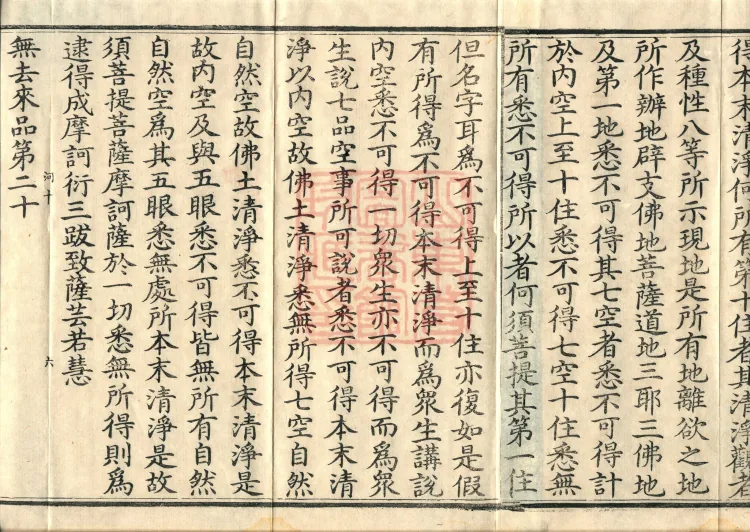 得本末清淨何所有第十住者其清淨觀者
及種性八等所示現地是所有地離欲之地
所作辦地辟支佛地菩薩道地三耶三佛地
及第一地悉不可得其七空者悉不可得計
於內空上至十住悉不可得七空十住悉無
所有悉不可得所以者何須菩提其第一住
但名字耳為不可得上至十住亦復如是假
有所得為不可得本末清淨而為眾生講說
內空悉不可得一切眾生亦不可得而為眾
生說七品空事所可說者悉不可得本末清
淨以內空故佛土清淨悉無所得七空自然
自然空故佛土清淨悉不可得本末清淨是
故內空及與五眼悉不可得皆無所有自然
自然空為其五眼悉無處所本末清淨是故
須菩提菩薩摩訶薩於一切悉無所得則為
逮得成摩訶衍三跋致薩芸若慧
河十 六
無去來品第二十